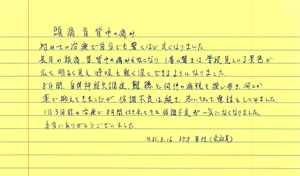 頭痛 首 背中の痛み
初めての治療で自分でも驚くほど良くなりました。
長年の頭痛、首、背中の痛みもなくなり 1番の驚きは、普段見ている景色が
広く、明るく見え 呼吸も軽く深くできるようになりました。
8年間、自律神経失調症、難聴と何件の病院を探し歩き、何とか
薬で抑えてきましたが 体調不良は続き、思いきって電話をしてみました。
1日3回の治療で 8年間はなんだったと 体調不良が一気になくなりました。
本当にありがとうございました。
H31.3.16 37才 男性 (会社員)